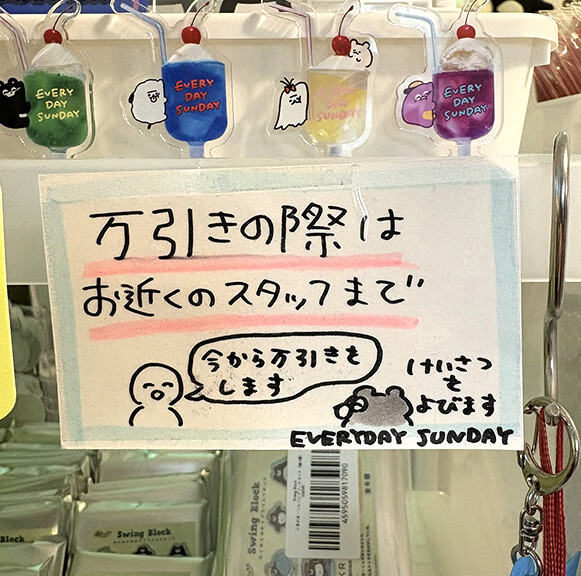 EVERY
DAY
SUNDAY
EVERY
DAY
SUNDAY
EVERY
DAY
SUNDAY
EVERY
DAY
SUNDAY
万引きの際は
お近くのスタッフまで
今から万引きを
します
けいさつ
を
よびます
EVERYDAY SUNDAY
Swing Block
Swing Block
Swing Block
4595059817090